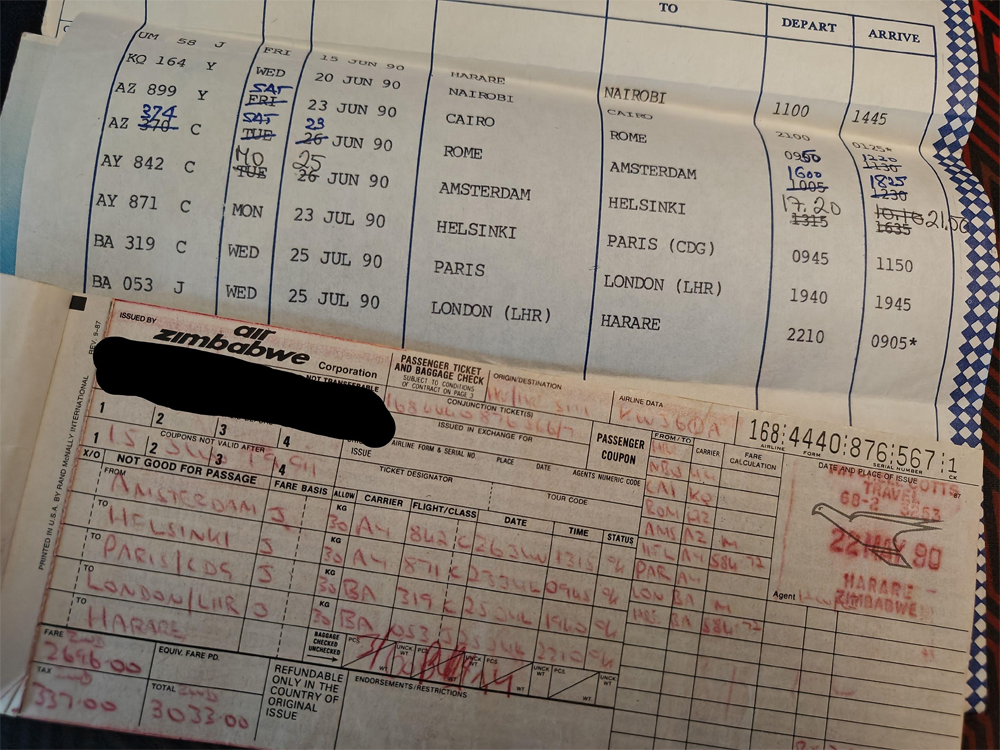 TO DEPART ARRIVE
UM 58 J FRI 15 JUN 90 HARARE NAIROBI 1100 1445
KQ 164 Y WED 20 JUN 90 NAIROBI CAIRO 2100 0125*
AZ 899 Y SAT FRI 23 JUN 90 CAIRO ROME 0950 1220 1130
AZ 374 370 C SAT TUE 23 26 JUN 90 ROME AMSTERDAM 1600 1005 1825 1230
AY 842 C MO TUE 25 26 JUN 90 AMSTERDAM HELSINKI 17.20 1315 1635
AY 871 C MON 23 JUL 90 HELSINKI PARIS (CDG) 0945 1150
BA 319 C WED 25 JUL 90 PARIS LONDON (LHR) 1940 1945
BA 053 J WED 25 JUL 90 LONDON (LHR) HARARE 2210 0905*
REV. 9-87
PRINTED IN U.S.A. BY RAND McNALLY INTERNATIONAL
ISSUED BY
air
zimbabwe
Corporation
NOT TRANSFERABLE
PASSENGER TICKET
AND BAGGAGE CHECK
SUBJECT TO CONDITIONS
OF CONTRACT ON PAGE 3
ORIGIN/DESTINATION
AIRLINE DATA
CONJUNCTION TICKET(S)
ISSUED IN EXCHANGE FOR
PASSENGER
COUPON
FROM/TO CARRIER FARE
CALCULATION
168:4440:876:567:1
AIRLINE FORM SERIAL NUMBER CK
1 2 3 4
COUPONS NOT VALID AFTER
1 2 3 4
ISSUE
AIRLINE FORM & SERIAL NO. PLACE DATE AGENTS NUMERIC CODE
DATE AND PLACE OF ISSUE
TRAVEL
22 MAY 90
HARARE -
ZIMBABWE
Agent
TICKET DESIGNATOR
TOUR CODE
X/O NOT GOOD FOR PASSAGE FARE BASIS ALLOW CARRIER FLIGHT/CLASS DATE TIME STATUS
FROM AMSTERDAM J KG 30 AY 842 C 26 JUN 1315 OK
TO HELSINKI J KG 30 AY 871 C 23 JUL 0945 OK
TO PARIS/CDG J KG 30 BA 319 C 25 JUL 1940 OK
TO LONDON/LHR J KG 30 BA 053 J 25 JUL 2210 OK
TO HARARE
CAI KQ
ROM AZ
AMS AZ M
HEL AY 584-72
PAR AY
LON BA M
HRE BA 584-72
BAGGAGE
CHECKED
UNCHECKED
PCS. WT UNCK WT PCS. WT UNCK WT PCS. WT UNCK WT PCS. WT UNCK WT
FARE 2696.00
EQUIV. FARE PD.
TAX 337.00
TOTAL 3033.00
REFUNDABLE
ONLY IN THE
COUNTRY OF
ORIGINAL
ISSUE
ENDORSEMENTS/RESTRICTIONS